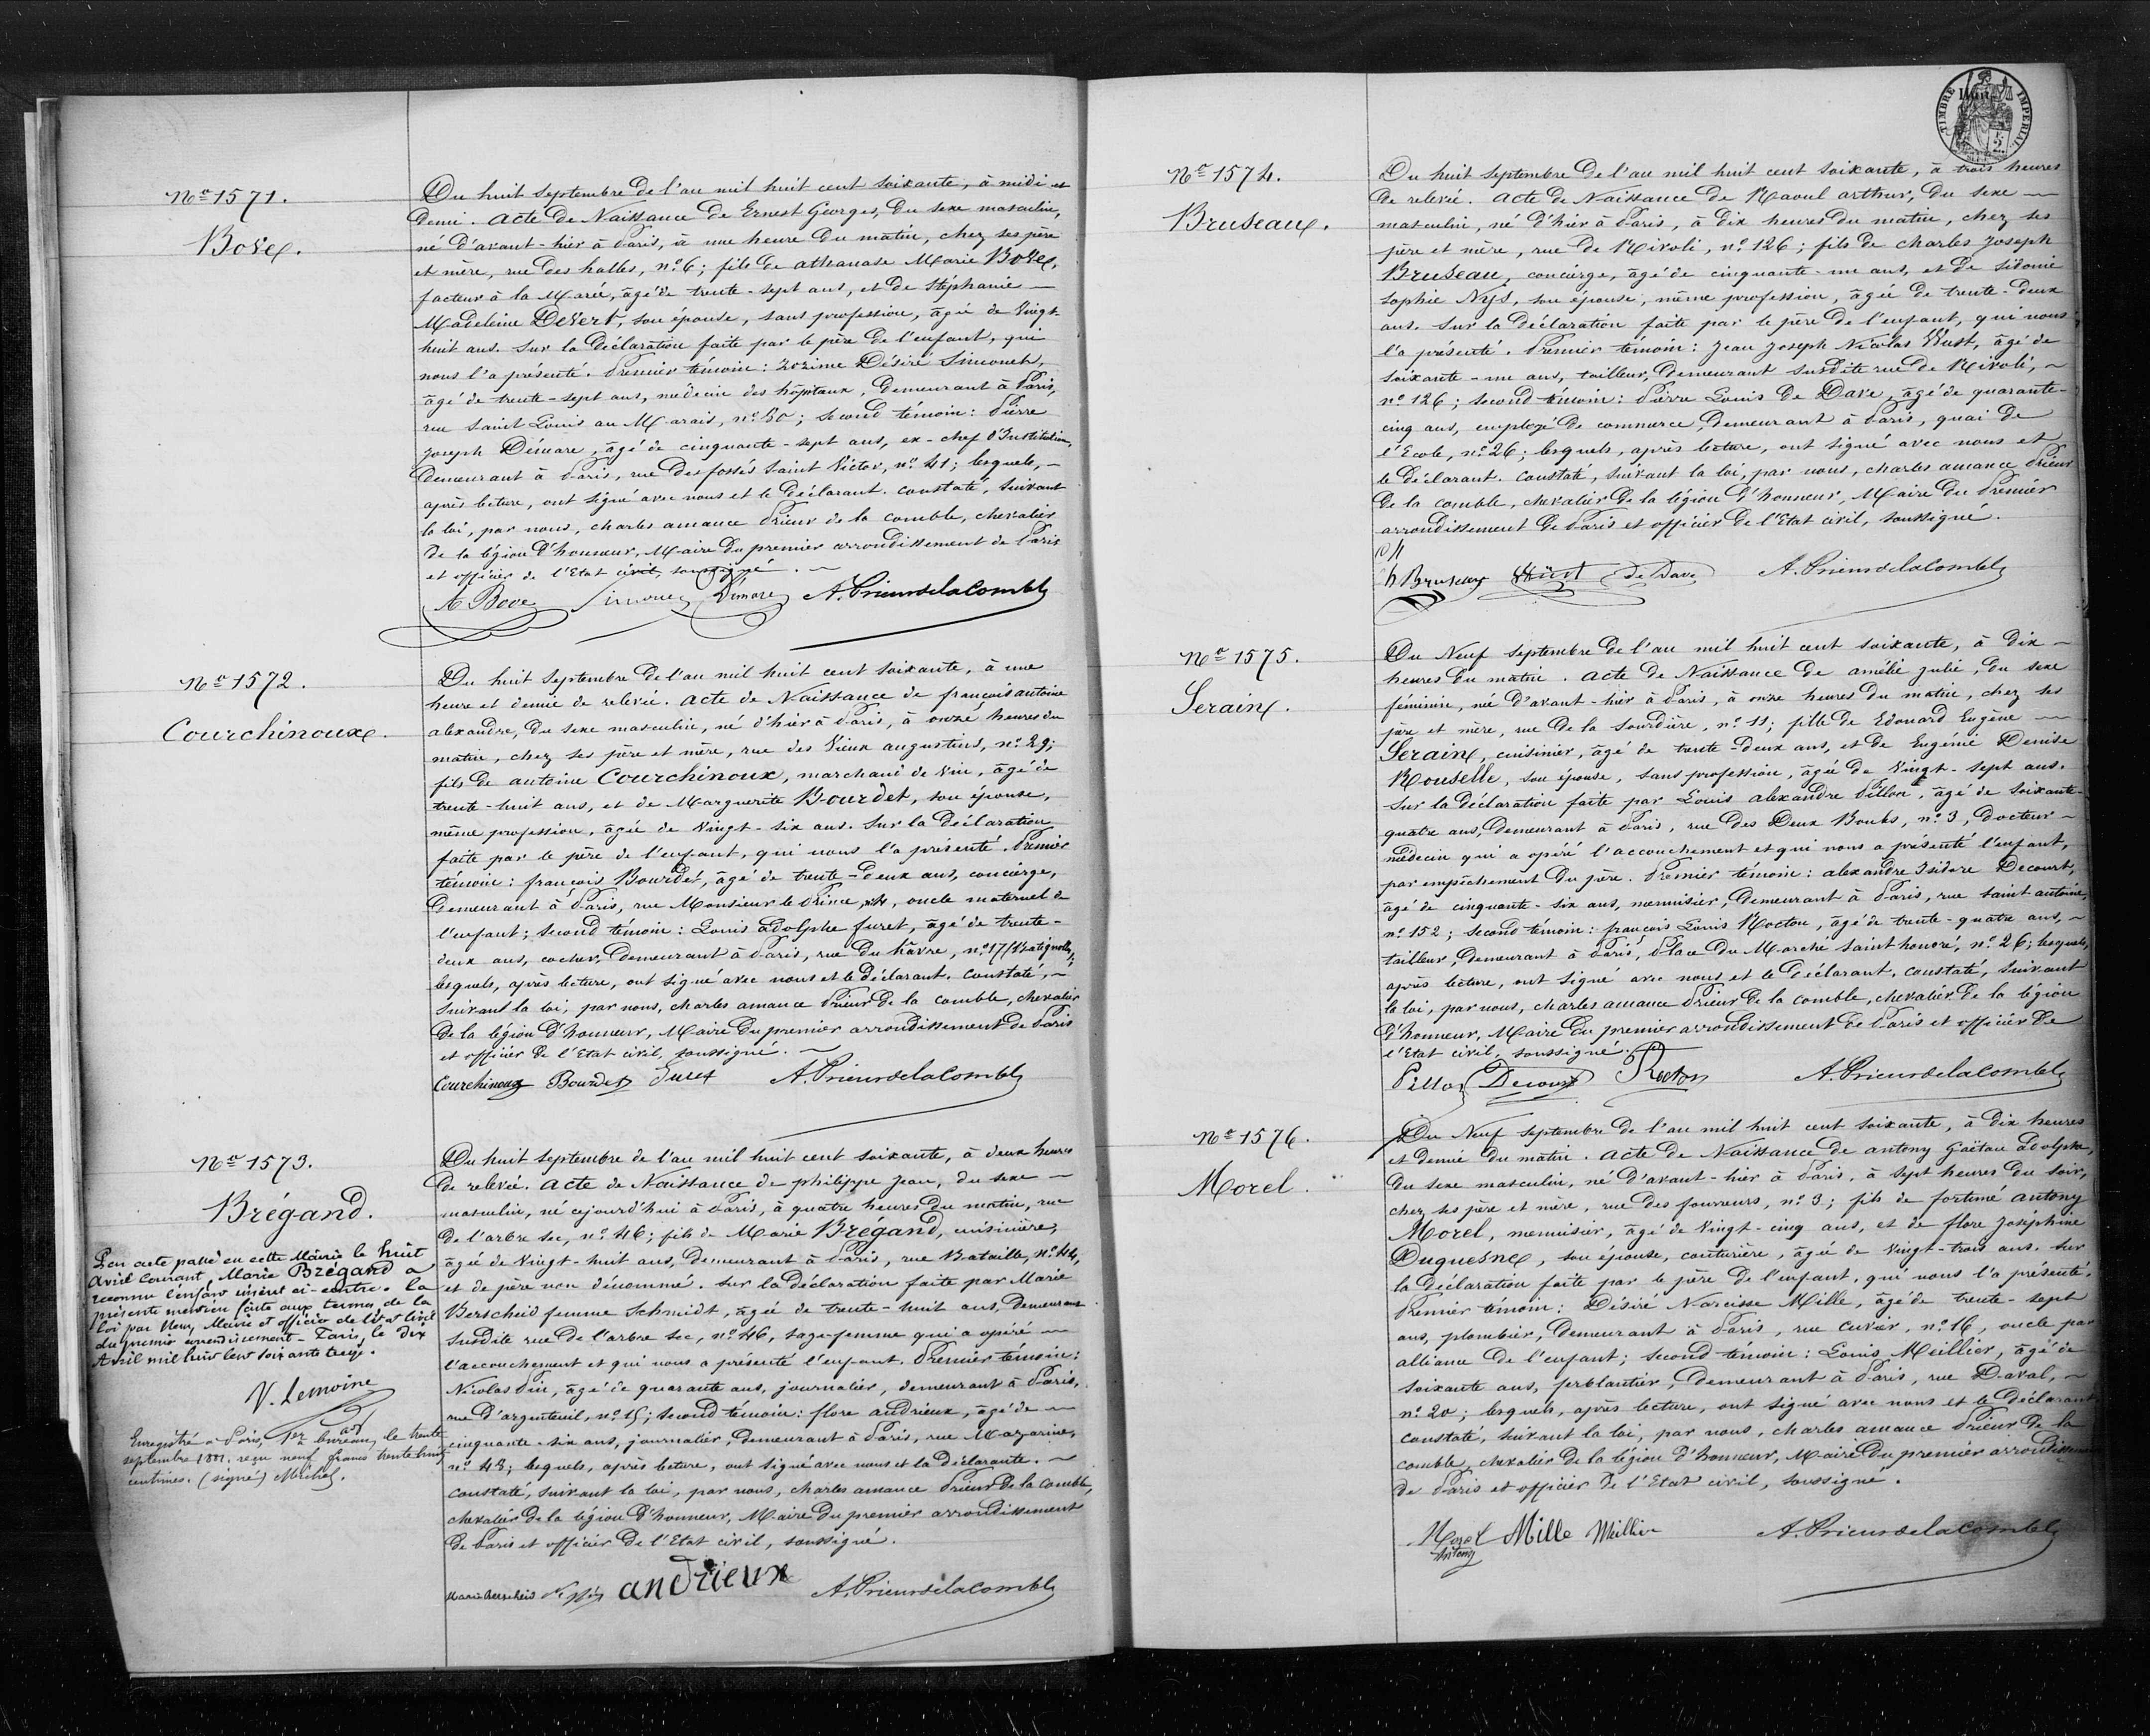 No 1571.
Bove.
Du huit Septembre de l'an mil huit cent soixante, à midi et
demi. Acte de Naissance de Ernest Georges, du sexe masculin,
né d'avant-hier à Paris, à une heure du matin, chez ses père
et mère, rue des halles, no 6; fils de athanase Marie Bove,
facteur à la Marée, âgé de trente-sept ans, et de Stéphanie
Madeleine Devert, son épouse, sans profession, âgée de vingt-
huit ans. Sur la Déclaration faite par le père de l'enfant, qui
nous l'a présenté. Premier témoin: Zozime Désiré Simonet,
âgé de trente-sept ans, médecin des hôpitaux, demeurant à Paris,
rue Saint Louis au Marais, no 50; second témoin: Pierre
Joseph Démare, âgé de cinquante-sept ans, ex-chef d'Institution,
demeurant à Paris, rue des fossés Saint Victor, no 41; lesquels,
après lecture, ont signé avec nous et le déclarant. Constaté, suivant
la loi, par nous, charles amance Prieur de la comble, chevalier
de la légion d'honneur, Maire du premier arrondissement de Paris
et officier de l'Etat civil, soussigné.
A Bove Simonet Démare A. Prieurdelacomble
No 1572.
Courchinoux.
Du huit Septembre de l'an mil huit cent soixante, à une
heure et demie de relevée. Acte de Naissance de françois antoine
alexandre, du sexe masculin, né d'hier à Paris, à onze heures du
matin, chez ses père et mère, rue des Vieux augustins, no 29;
fils de antoine Courchinoux, marchand de vin, âgé de
trente-huit ans, et de Marguerite Bourdet, son épouse,
même profession, âgée de vingt-six ans. Sur la Déclaration
faite par le père de l'enfant, qui nous l'a présenté. Premier
témoin: françois Bourdet, âgé de trente-deux ans, concierge,
demeurant à Paris, rue Monsieur le Prince, oncle maternel de
l'enfant; second témoin: Louis adolphe furet, âgé de trente-
deux ans, cocher, demeurant à Paris, rue du hâvre, no 17 (Batignolles);
lesquels, après lecture, ont signé avec nous et le déclarant. Constaté,
suivant la loi, par nous, charles amance Prieur de la comble, chevalier
de la légion d'honneur, Maire du premier arrondissement de Paris
et officier de l'Etat civil, soussigné.
Courchinoux Bourdet Furet A. Prieurdelacomble
No 1573.
Brégand.
Par acte passé en cette Mairie le huit
avril courant, Marie Brégand a
reconnu l'enfant inscrit ci-contre. La
présente mention faite aux termes de la
loi par Nous, Maire et officier de l'état civil
du premier arrondissement. Paris, le dix
Avril mil huit cent soixante treize.
V. Lemoine
Enregistré à Paris, 1er bureau, le trente
septembre 1881. reçu neuf francs trente huit
centimes. (signé) Michel.
Du huit Septembre de l'an mil huit cent soixante, à deux heures
de relevée. Acte de Naissance de philippe Jean, du sexe
masculin, né cejourd'hui à Paris, à quatre heures du matin, rue
de l'arbre sec, no 46; fils de Marie Brégand, cuisinière,
âgée de vingt-huit ans, demeurant à Paris, rue Bataille, no 44,
et de père non dénommé. Sur la déclaration faite par Marie
Berscheid femme Schmidt, âgée de trente-huit ans, demeurant
susdite rue de l'arbre sec, no 46, sage-femme qui a opéré
l'accouchement et qui nous a présenté l'enfant. Premier témoin:
Nicolas Pin, âgé de quarante ans, journalier, demeurant à Paris,
rue d'argenteuil, no 15; second témoin: flore andrieux, âgé de
cinquante-six ans, journalier, demeurant à Paris, rue Mazarine,
no 43; lesquels, après lecture, ont signé avec nous et la déclarante.
Constaté, suivant la loi, par nous, charles amance Prieur de la comble,
chevalier de la légion d'honneur, Maire du premier arrondissement
de Paris et officier de l'Etat civil, soussigné.
Marie Berscheid andrieux A. Prieurdelacomble
TIMBRE IMPERIAL
No 1574.
Bruseaux.
Du huit Septembre de l'an mil huit cent soixante, à trois heures
de relevée. Acte de Naissance de Raoul arthur, du sexe
masculin, né d'hier à Paris, à dix heures du matin, chez ses
père et mère, rue de Rivoli, no 126; fils de charles Joseph
Bruseau, concierge, âgé de cinquante-un ans, et de Sidonie
Sophie Nys, son épouse, même profession, âgée de trente-deux
ans. Sur la déclaration faite par le père de l'enfant, qui nous
l'a présenté. Premier témoin: Jean Joseph Nicolas Wust, âgé de
soixante-un ans, tailleur, demeurant susdite rue de Rivoli,
no 126; second témoin: Pierre Louis De Dave, âgé de quarante-
cinq ans, employé de commerce, demeurant à Paris, quai de
l'Ecole, no 26; lesquels, après lecture, ont signé avec nous et
le déclarant. Constaté, suivant la loi, par nous, charles amance Prieur
de la comble, chevalier de la légion d'honneur, Maire du Premier
arrondissement de Paris et officier de l'Etat civil, soussigné.
Bruseau Wüst De Dave A. Prieurdelacomble
No 1575.
Serain.
Du Neuf Septembre de l'an mil huit cent soixante, à dix
heures du matin. Acte de Naissance de amélie Julie, du sexe
féminin, née d'avant-hier à Paris, à onze heures du matin, chez ses
père et mère, rue de la Sourdière, no 11; fille de Edouard Eugène
Serain, cuisinier, âgé de trente-deux ans, et de Eugénie Denise
Rouselle, son épouse, sans profession, âgée de vingt-sept ans.
Sur la déclaration faite par Louis alexandre Pillon, âgé de soixante-
quatre ans, demeurant à Paris, rue des Deux Boules, no 3, docteur
médecin qui a opéré l'accouchement et qui nous a présenté l'enfant,
par empêchement du père. Premier témoin: alexandre Isidore Decourt,
âgé de cinquante-six ans, menuisier, demeurant à Paris, rue saint antoine,
no 152; second témoin: françois Louis Rocton, âgé de trente-quatre ans,
tailleur, demeurant à Paris, Place du Marché Saint honoré, no 26; lesquels,
après lecture, ont signé avec nous et le déclarant. Constaté, suivant
la loi, par nous, charles amance Prieur de la comble, chevalier de la légion
d'honneur, Maire du premier arrondissement de Paris et officier de
l'Etat civil, soussigné.
Pillon Decourt Rocton A. Prieurdelacomble
No 1576.
Morel.
Du Neuf Septembre de l'an mil huit cent soixante, à dix heures
et demie du matin. Acte de Naissance de antony gaëtan adolphe,
du sexe masculin, né d'avant-hier à Paris, à sept heures du soir,
chez ses père et mère, rue des fourreurs, no 3; fils de fortuné antony
Morel, menuisier, âgé de vingt-cinq ans, et de flore Joséphine
Duquesne, son épouse, couturière, âgée de vingt-trois ans. Sur
la déclaration faite par le père de l'enfant, qui nous l'a présenté.
Premier témoin: Désiré Narcisse Mille, âgé de trente-sept
ans, plombier, demeurant à Paris, rue cuvier, no 16, oncle par
alliance de l'enfant; second témoin: Louis Meillier, âgé de
soixante ans, ferblantier, demeurant à Paris, rue Daval,
no 20; lesquels, après lecture, ont signé avec nous et le déclarant
constaté, suivant la loi, par nous, charles amance Prieur de la
comble, chevalier de la légion d'honneur, Maire du premier arrondissement
de Paris et officier de l'Etat civil, soussigné.
Morel Mille Meillier A. Prieurdelacomble
Antony